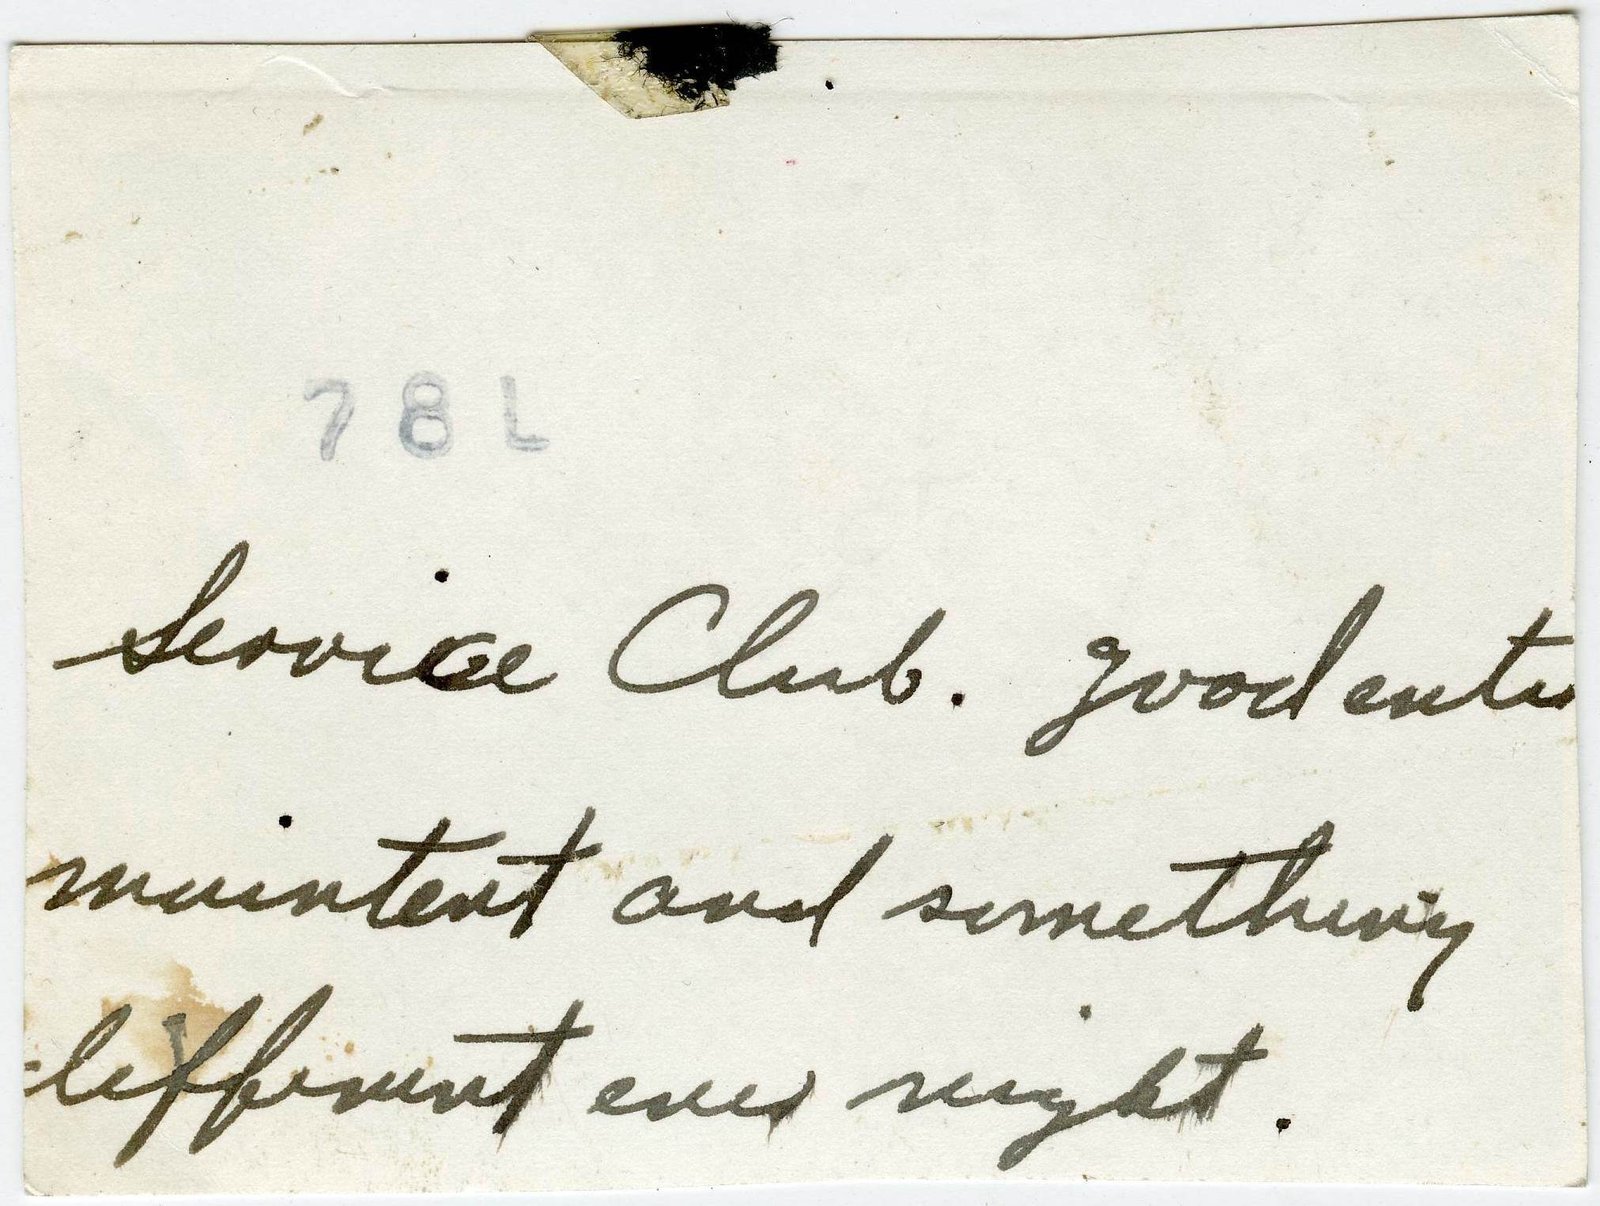 78L
Service Club. good enter
maintent and something
different ever night.